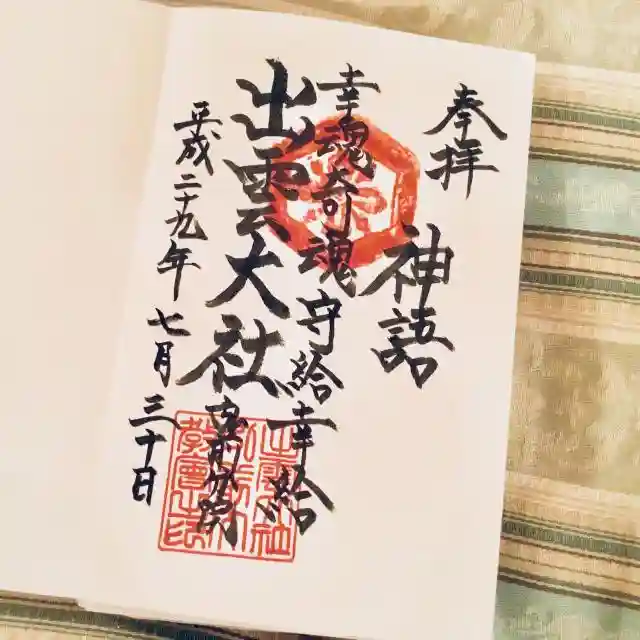 奉拝
神語
幸魂奇魂守給幸給
出雲大社
平成二十九年七月三十日